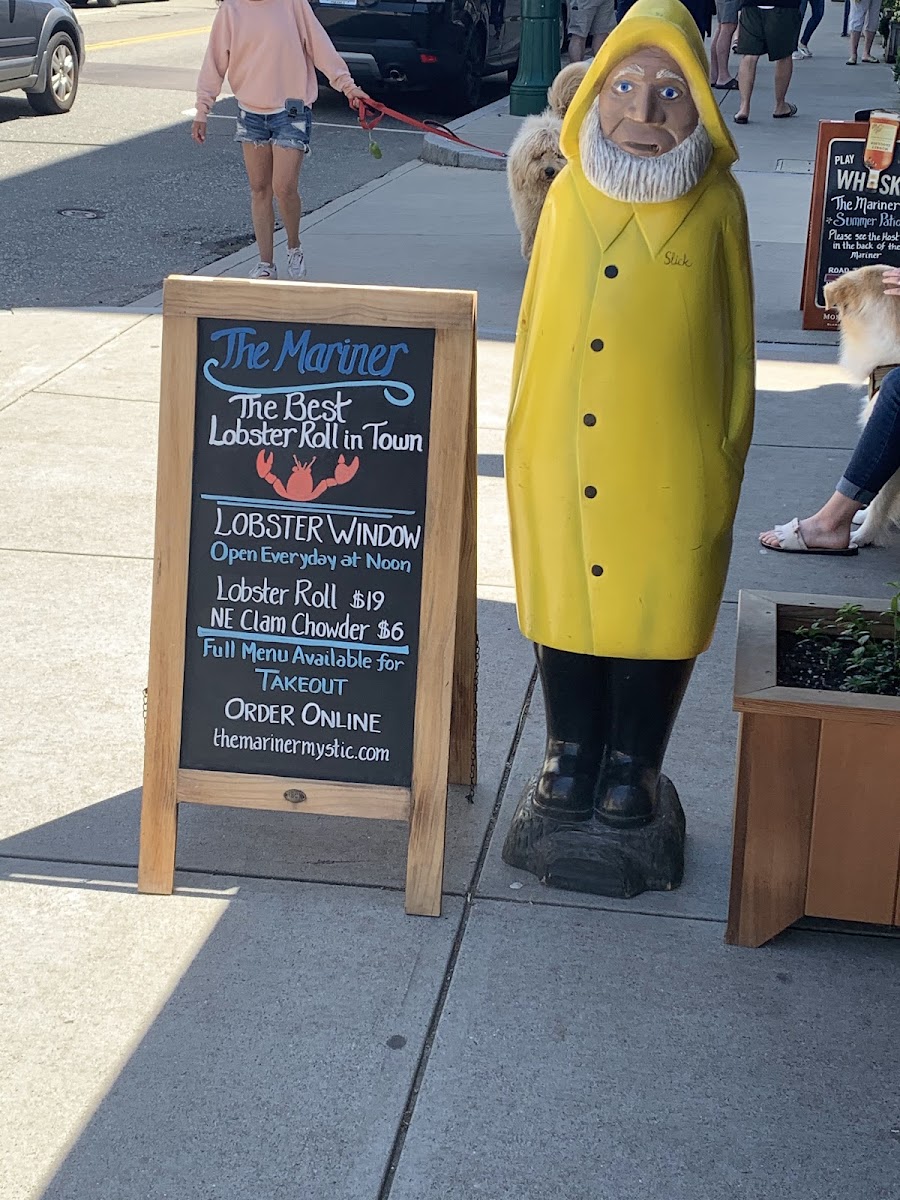 The Mariner
The Best
Lobster Roll in Town
LOBSTER WINDOW
Open Everyday at Noon
Lobster Roll $19
NE Clam Chowder $6
Full Menu Available for
TAKEOUT
ORDER ONLINE
themarinermystic.com
Slick
PLAY
WHISK
The Mariner
Summer Patio
Please see the Host
in the back of the
Mariner